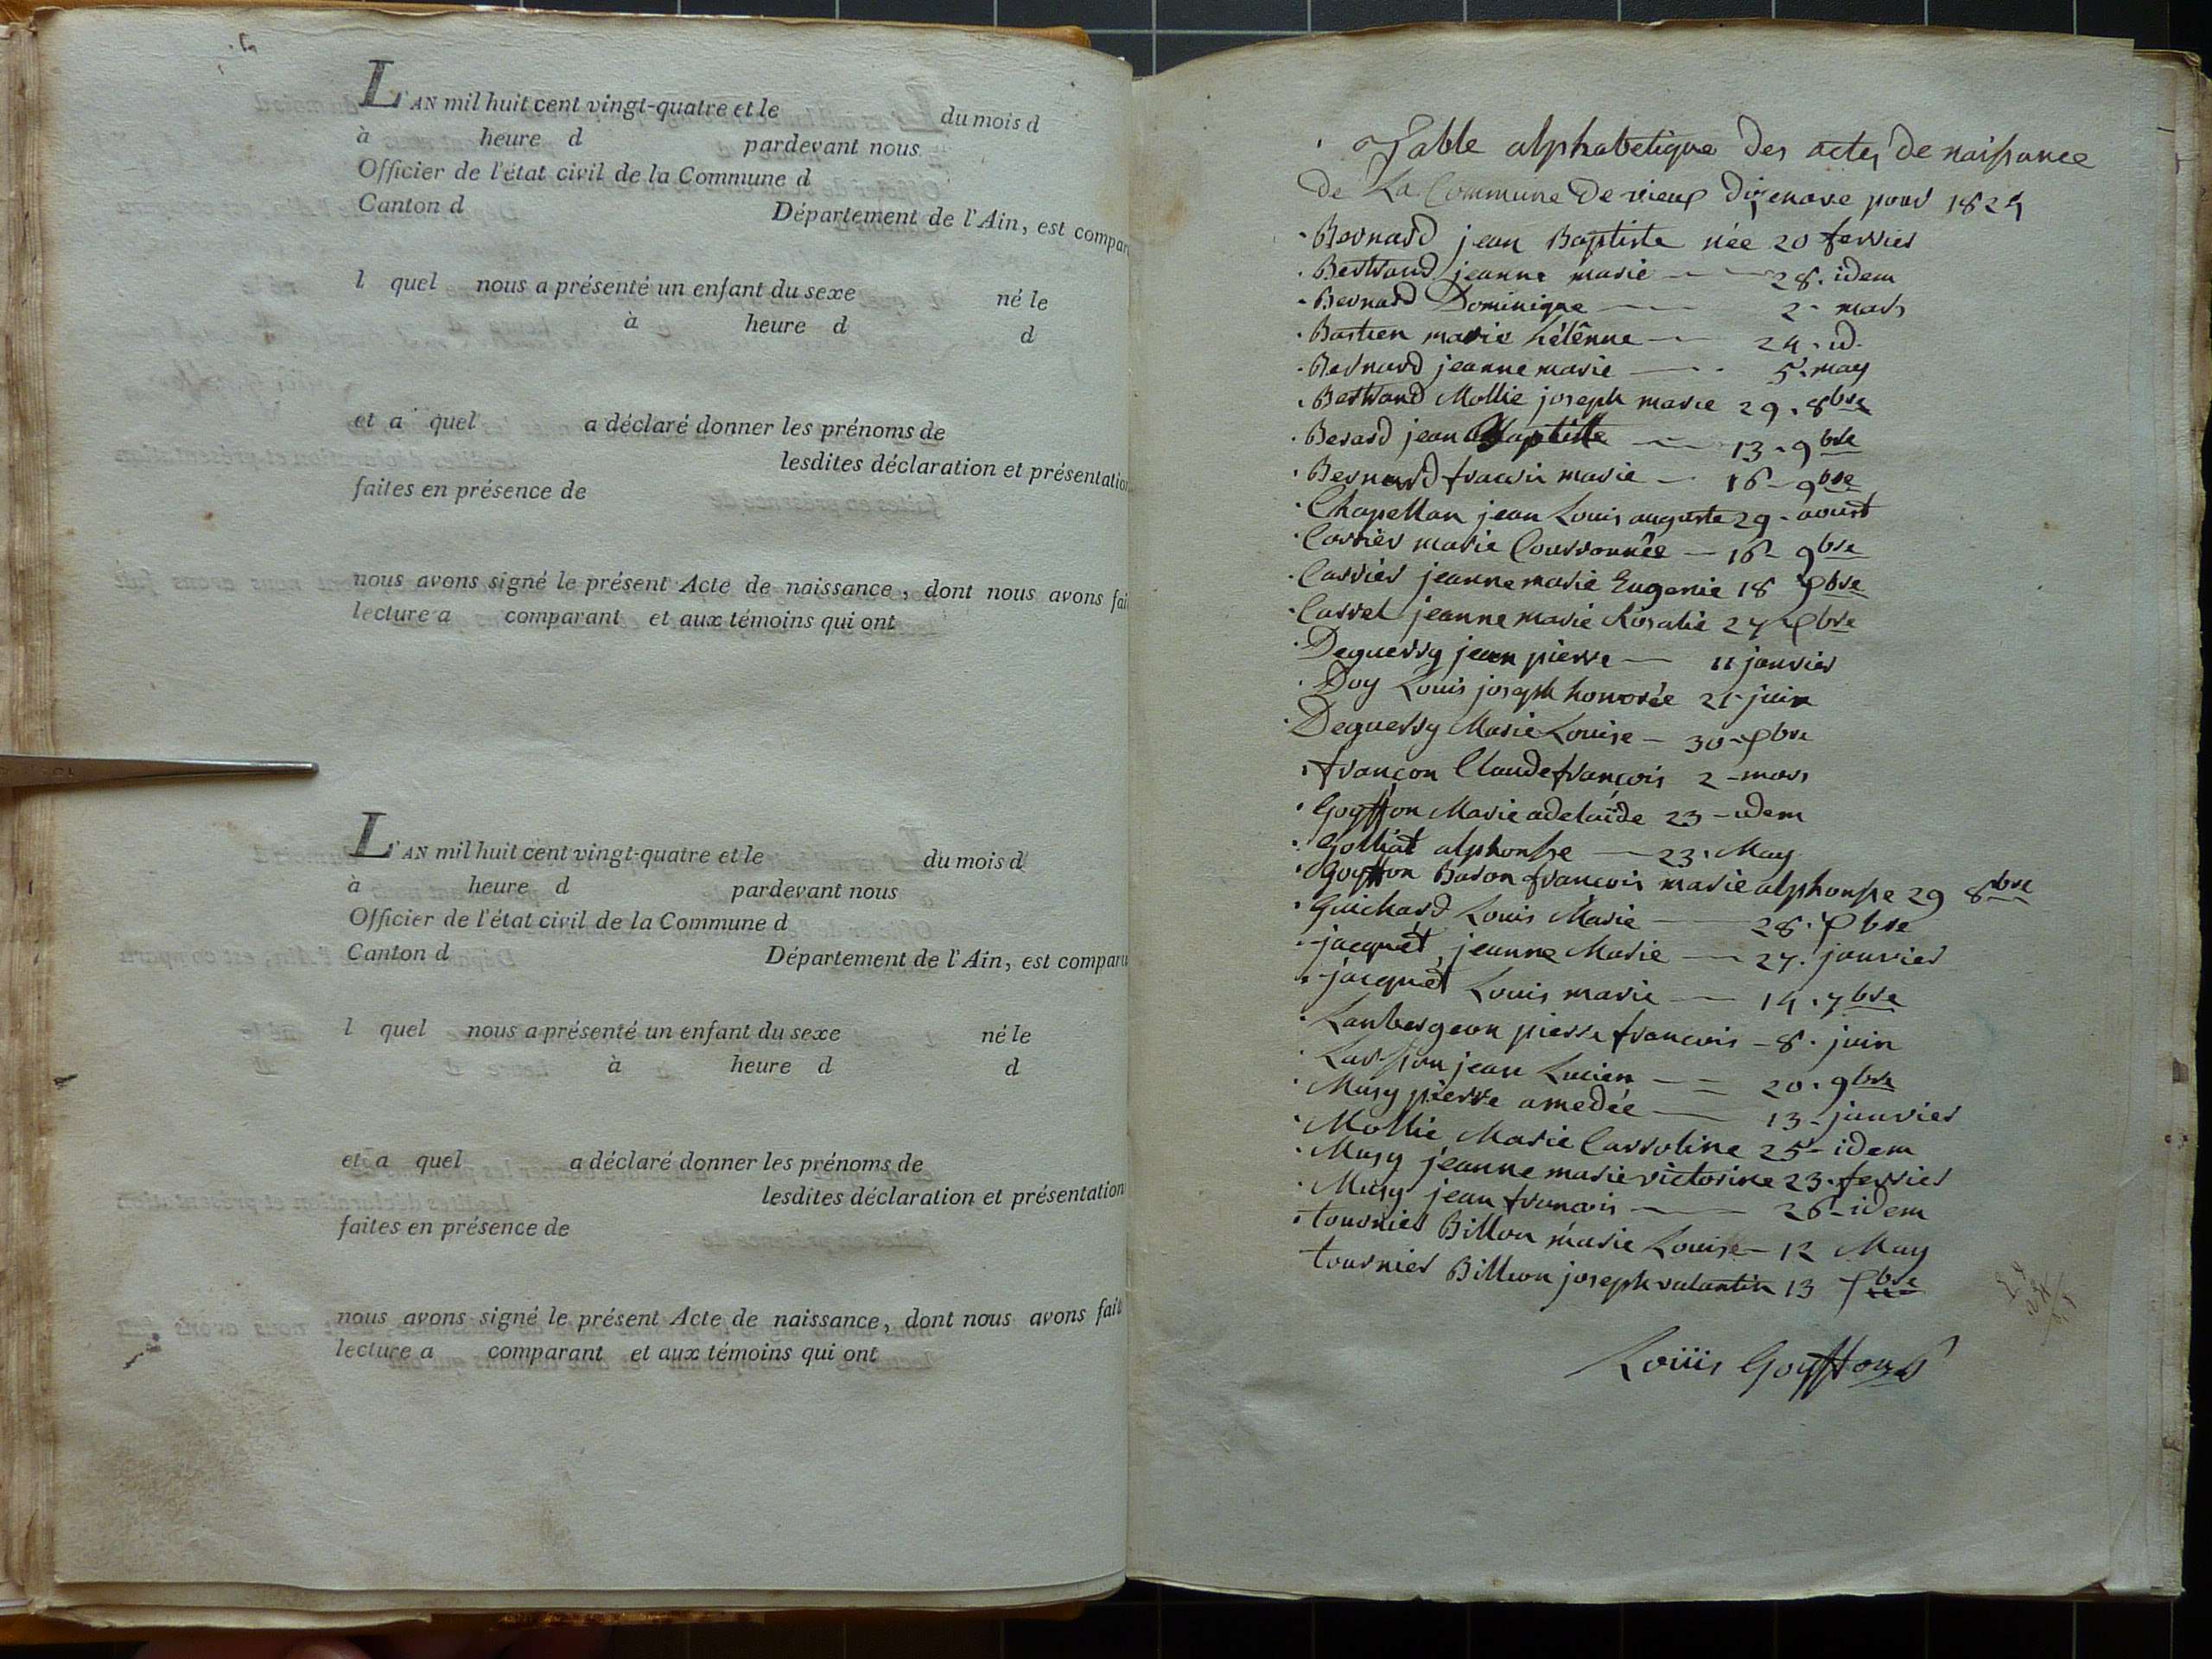 L'AN mil huit cent vingt-quatre et le du mois d
à heure d pardevant nous
Officier de l'état civil de la Commune d
Canton d Département de l'Ain, est compar
l quel nous a présenté un enfant du sexe né le
à heure d d
et a quel a déclaré donner les prénoms de
lesdites déclaration et présentation
faites en présence de
nous avons signé le présent Acte de naissance, dont nous avons fai
lecture a comparant et aux témoins qui ont
L'AN mil huit cent vingt-quatre et le du mois d
à heure d pardevant nous
Officier de l'état civil de la Commune d
Canton d Département de l'Ain, est comparu
l quel nous a présenté un enfant du sexe né le
à heure d d
et a quel a déclaré donner les prénoms de
lesdites déclaration et présentation
faites en présence de
nous avons signé le présent Acte de naissance, dont nous avons fait
lecture a comparant et aux témoins qui ont
Table alphabetique des actes de naissance
de La Commune de vieux d'izenave pour 1824
Bernard jean Baptiste née 20 fevrier
Bertrand jeanne marie 28. idem
Bernard Dominique 2. mars
Bastien marie hélênne 24. id.
Bernard jeanne marie 5. may
Bertrand Mollie joseph marie 29. 8bre
Berard jean Baptiste 13. 9bre
Bernard francois marie 16 9bre
Chapellan jean Louis auguste 29. aoust
Carrier marie Courronnée 16 9bre
Carrier jeanne marie Eugenie 18 Xbre
Carrel jeanne marie Rosalie 27 Xbre
Deguerry jean pierre 11 janvier
Doy Louis joseph honorée 21 juin
Deguerry Marie Louise 30 Xbre
françon Claude françois 2 mars
Goyffon Marie adelaïde 23 idem
Golliat alphonse 23. May
Goyffon Baron francois marie alphonse 29 8bre
Guichard Louis Marie 28. Xbre
jacquet, jeanne Marie 27. janvier
jacquet Louis marie 14. 7bre
Lanbergeon pierre francois 8. juin
jean Lucien 20. 9bre
Musy pierre amedée 13. janvier
Mollie Marie Carroline 25 idem
Musy jeanne marie victorine 23. fevrier
Musy jean francois 26 idem
tournier Billon marie Louise 12 May
tournier Billion joseph valantin 13 Xbre
Loüis Goyffon